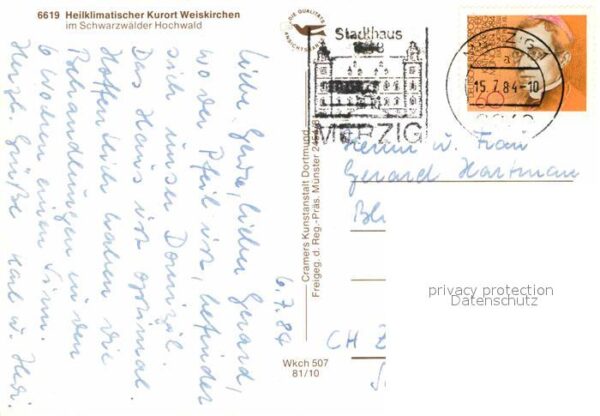 6619 Heilklimatischer Kurort Weiskirchen
im Schwarzwälder Hochwald
DIE QUALITÄTS
ANSICHTSKARTE
Stadthaus
MERZIG
MERZIG
15.7.84-10
60
Liebe Gerda, lieber Gerard,
wo der Pfeil ist, befindet
sich unser Domizil.
Das Haus ist optimal
Hoffentlich haben die
Behandlungen in den
6 Wochen einen Sinn.
Herzl. Grüße Karl u. Hedi.
6.7.84
Cramers Kunstanstalt Dortmund
Freigeg. d. Reg.-Präs. Münster
Wkch 507
81/10
Herrn u. Frau
Gerard Hartman
CH
privacy protection
Datenschutz